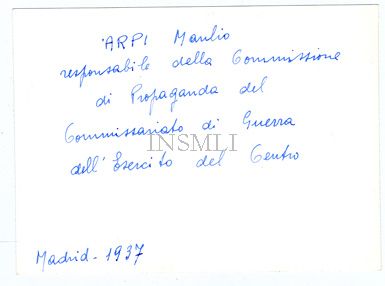 'ARPI Manlio
responsabile della Commissione
di Propaganda del
Commissariato di Guerra
INSMLI
dell'Esercito del Centro
Madrid - 1937